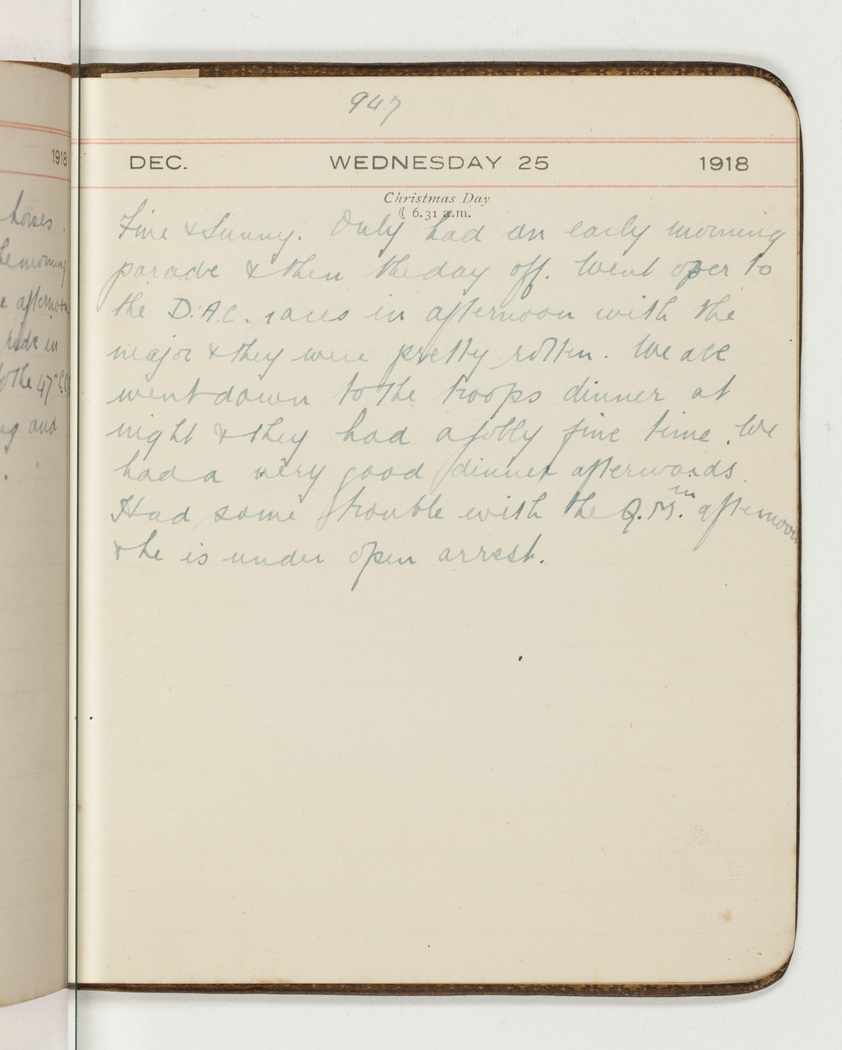 947
1918
DEC. WEDNESDAY 25 1918
Christmas Day
☾ 6.31 a.m.
Fine & Sunny. Only had an early morning
parade & then the day off. Went over to
the D.A.C. races in afternoon with the
major & they were pretty rotten. We all
went down to the troops dinner at
night & they had a jolly fine time. We
had a very good dinner afterwards.
Had some trouble with the Q.M. in afternoon
& he is under open arrest.
horses.
the morning
e afternoon
ride in
to the 47th
ng and